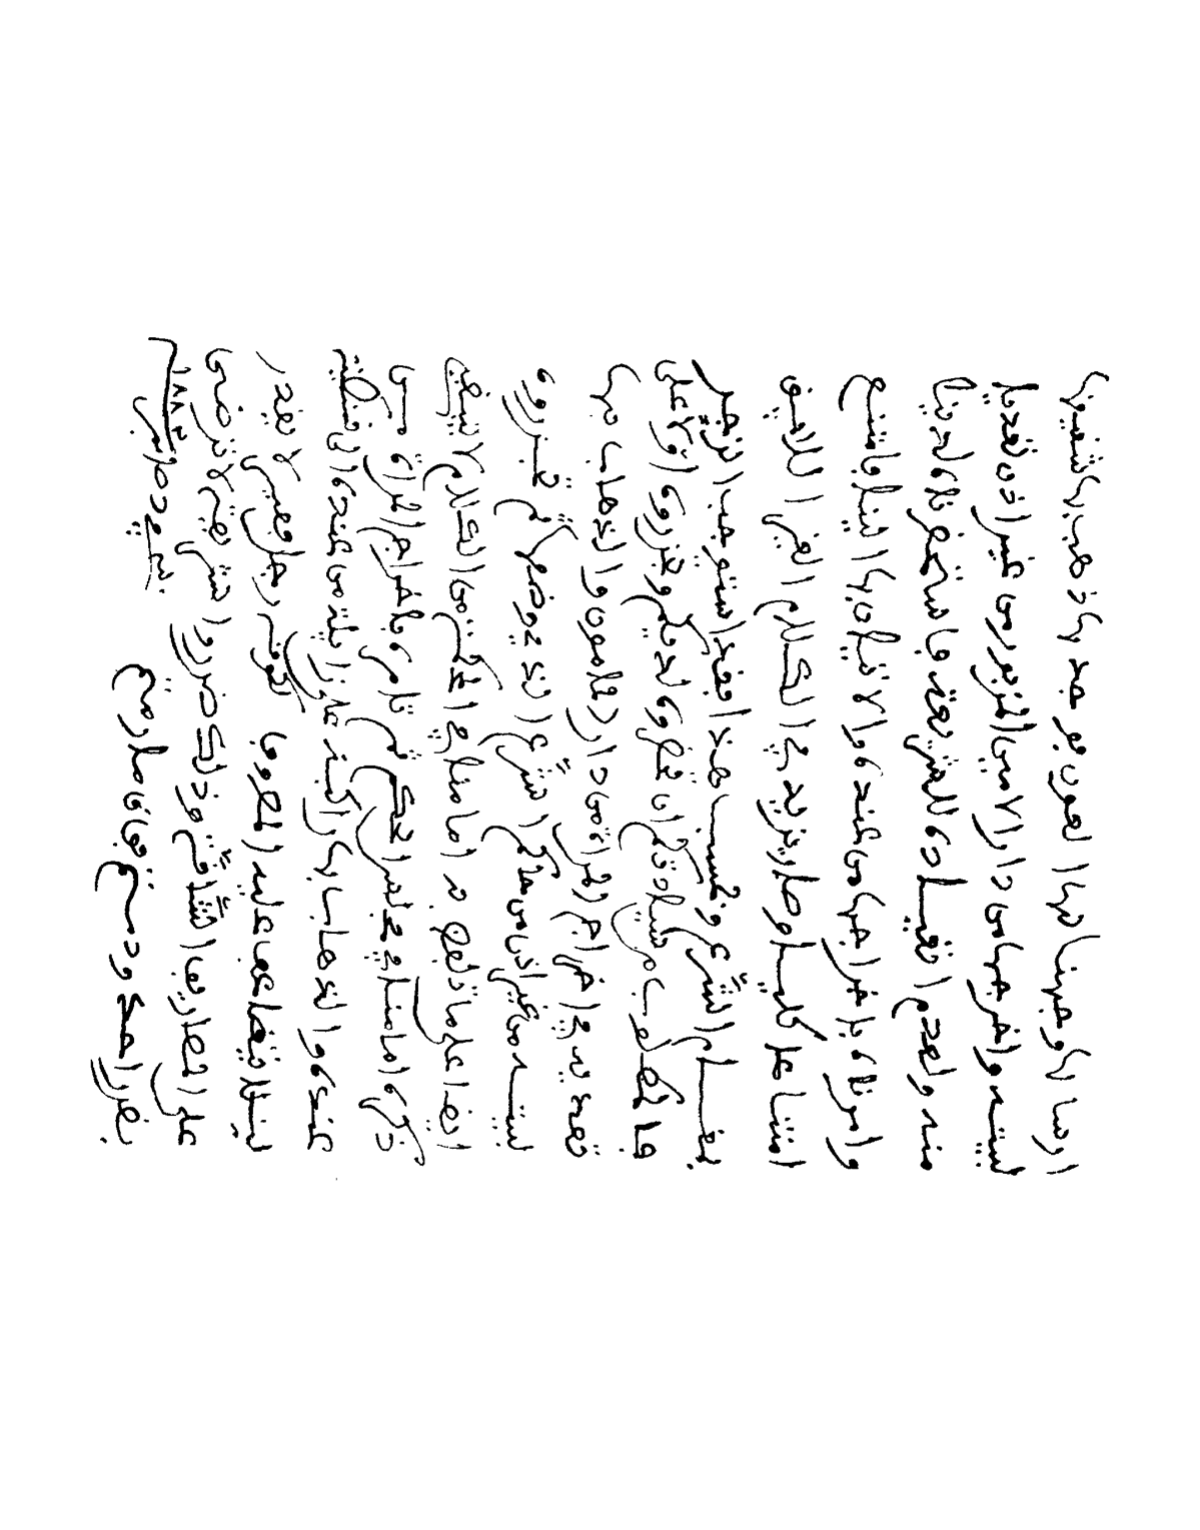 ارسالها وجهنا لها العون فوجد بها ذهب بها شفيقها
لبيته واخرجها من دار الامين المزبور من غير اذن تعديا
منه ولعدم انقياده للشريعة فاستحضرناه لدينا
وامرناه باخراجها من عنده والاتيان بها الينا فامتنع
امتناعا كليا وصار يزيد في الكلام الغير اللايق
بمقام الشرع وبحسب هذا فقد استوجب الزجر
فالمطلوب من سيادتكم ان وتجزروه اولا على
تعديه في اخراج المراة من دار مامون والذهاب بها
لبيته من غير اذن من حاكم الشرع الذي وضعها ثم تجزروه
ايضا على ما تلفظ به امامنا في من الكلام لا يليق
ذكره امامنا في مجلس الحكم ثم تامره باخراج المراة من
عنده والذهاب بها من عنده
ليلا يتضاعف عليه المصروف لكونه رجل لا يقدر
على المصاريف الشاقة وذلك ضرر لا ترضى
بضرر احد ودمتم في ١٨٨٢